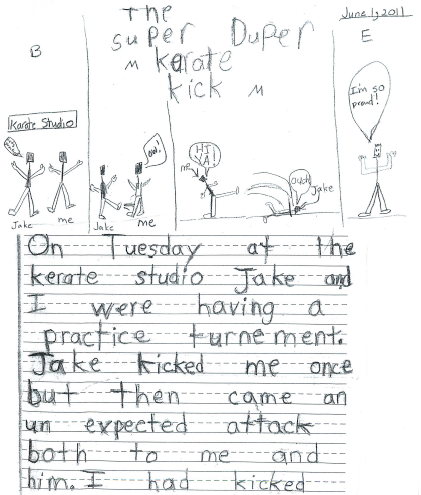 June 1, 2011
The
super Duper
B
M karate
E
kick M
I'm so
proud!
Karate Studio
HI
YA!
me
ouch
Jake
Jake
me
Jake
me
On Tuesday at the
kerate studio Jake and
I were having a
practice turnement.
Jake kicked me once
but then came an
un expected attack
both to me and
him. I had kicked